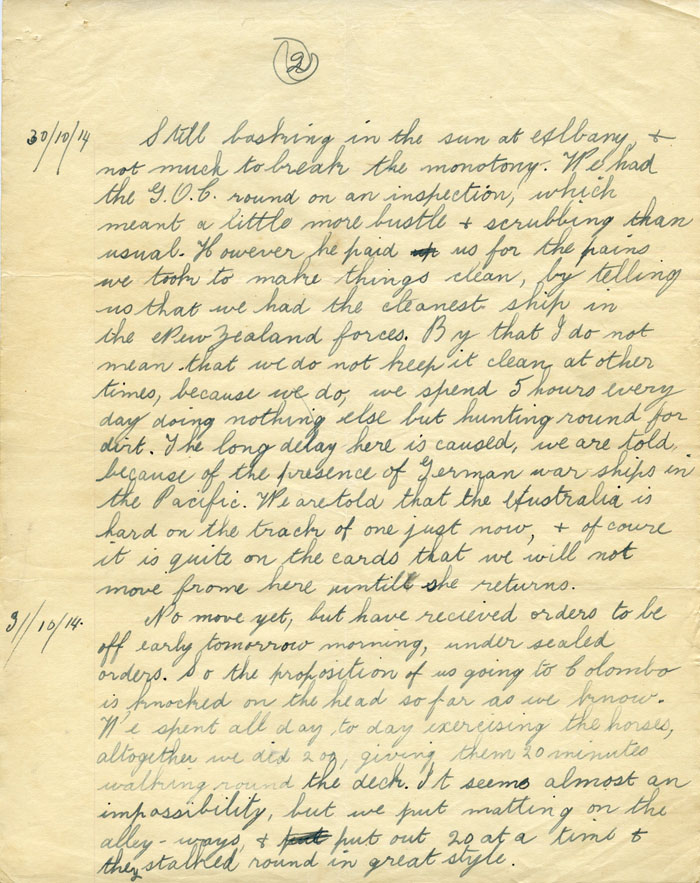 2
30/10/14 Still basking in the sun at Albany, &
not much to break the monotony. We had
the G.O.C. round on an inspection, which
meant a little more bustle & scrubbing than
usual. However he paid up us for the pains
we took to make things clean, by telling
us that we had the cleanest ship in
the New Zealand forces. By that I do not
mean that we do not keep it clean at other
times, because we do, we spend 5 hours every
day doing nothing else but hunting round for
dirt. The long delay here is caused, we are told,
because of the presence of German war ships in
the Pacific. We are told that the Australia is
hard on the track of one just now, & of coure
it is quite on the cards that we will not
move frome here untill she returns.
31/10/14. No move yet, but have recieved orders to be
off early tomorrow morning, under sealed
orders. So the proposition of us going to Colombo
is knocked on the head so far as we know.
We spent all day to day exercising the horses,
altogether we did 200, giving them 20 minutes
walking round the deck. It seems almost an
impossibility, but we put matting on the
alley-ways, & put put out 20 at a time &
they stalked round in great style.